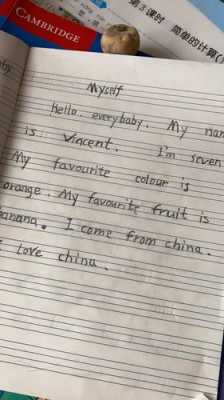 CAMBRIDGE
第3课时 简单的计算(
Myself
Hello, everybaby. My nam
is: Vincent. I'm seven
My favourite colour is
orange. My favourite fruit is
banana. I come from china.
I love china.